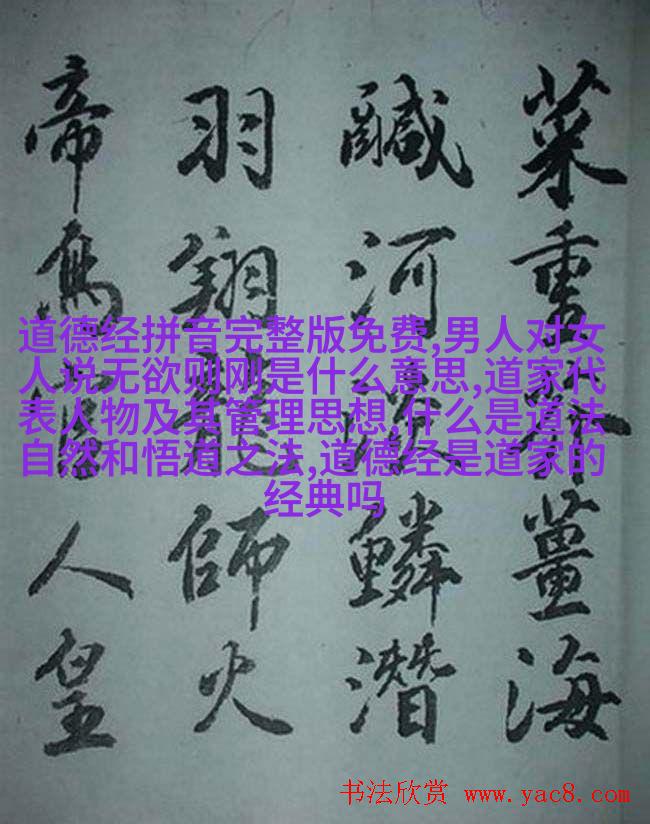 菜重芥薑海
鹹河淡鱗潛
羽翔龍師火
帝鳥官人皇
道德经拼音完整版免费,男人对女
人说无欲则刚是什么意思,道家代
表人物及其管理思想,什么是道法
自然和悟道之法,道德经是道家的
经典吗
书法欣赏 www.yac8.com